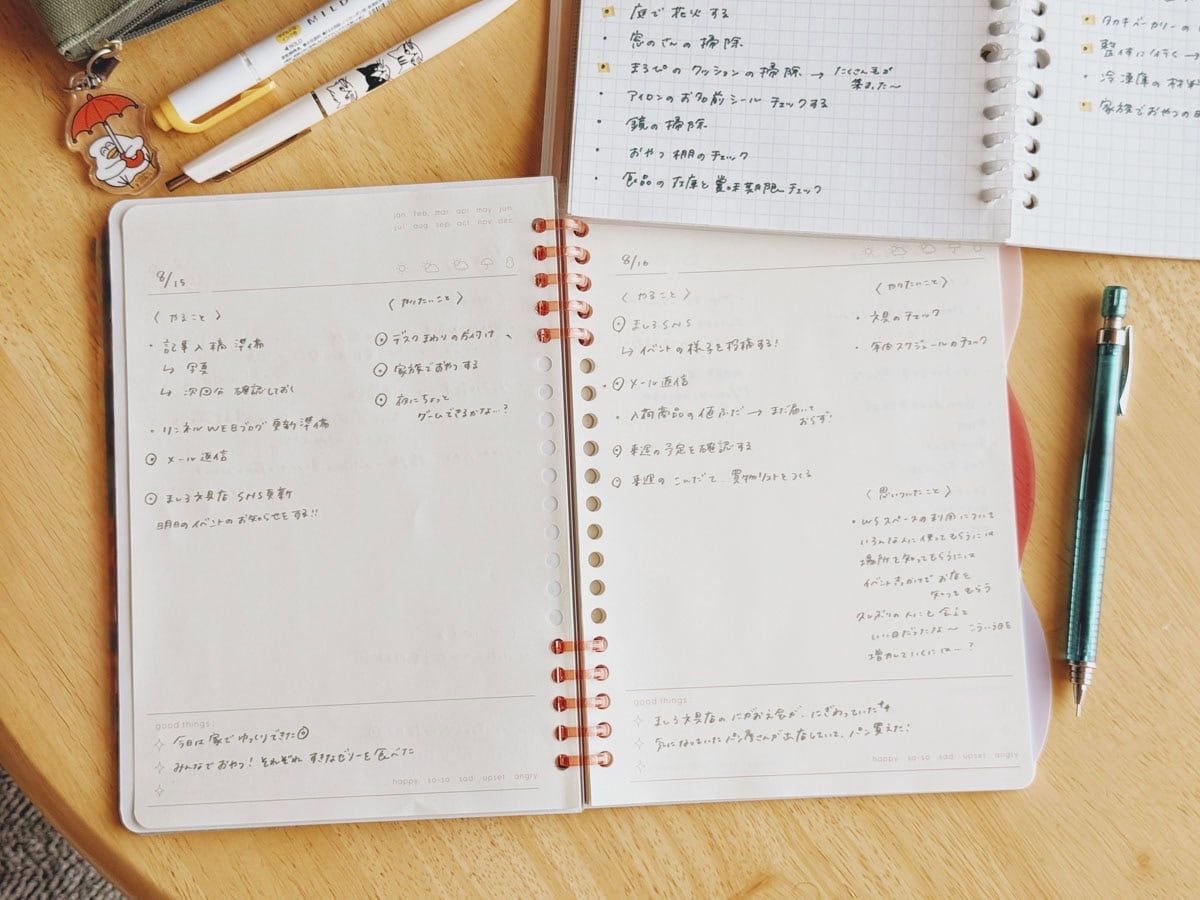 MILD
庭で花火する
窓のさんの掃除
まるぴのクッションの掃除 → たくさん毛が
集まった〜
アイロンのお名前シールチェックする
鏡の掃除
おやつ棚のチェック
食品の在庫と賞味期限チェック
タカキベーカリーの
整体に行く →
冷凍庫の材料
家族でおやつの
jan feb mar apr may jun
jul aug sep oct nov dec
8/15
〈やること〉
・記事入稿準備
↳ 写真
↳ 次回分 確認しておく
・リンネルWEBブログ 更新準備
メール返信
ましろ文具店 SNS更新
明日のイベントのお知らせをする!!
〈やりたいこと〉
デスクまわりの片付け
家族でおやつする
夜にちょっと
ゲームできるかな…?
good things :
今日は家でゆっくりできた
みんなでおやつ! それぞれ すきなゼリーを食べた
happy so-so sad upset angry
8/16
〈やること〉
ましろSNS
↳ イベントの様子を投稿する!
メール返信
・入荷商品の値ふだ → まだ届いて
おらず!
来週の予定を確認する
来週の こんだて、買物リストをつくる
〈やりたいこと〉
・文具のチェック
・年間スケジュールのチェック
〈思いついたこと〉
・WSスペースの利用について
いろんな人に使ってもらうには
場所を知ってもらうには
イベントきっかけで お店を
知ってもらう
久しぶりの人にも会えて
いい日だったな〜 こういう日を
増やしていくには…?
good things :
ましろ文具店のにがおえ会が、にぎわっていた
気になっていたパン屋さんが出店していて、パン買えた!
happy so-so sad upset angry